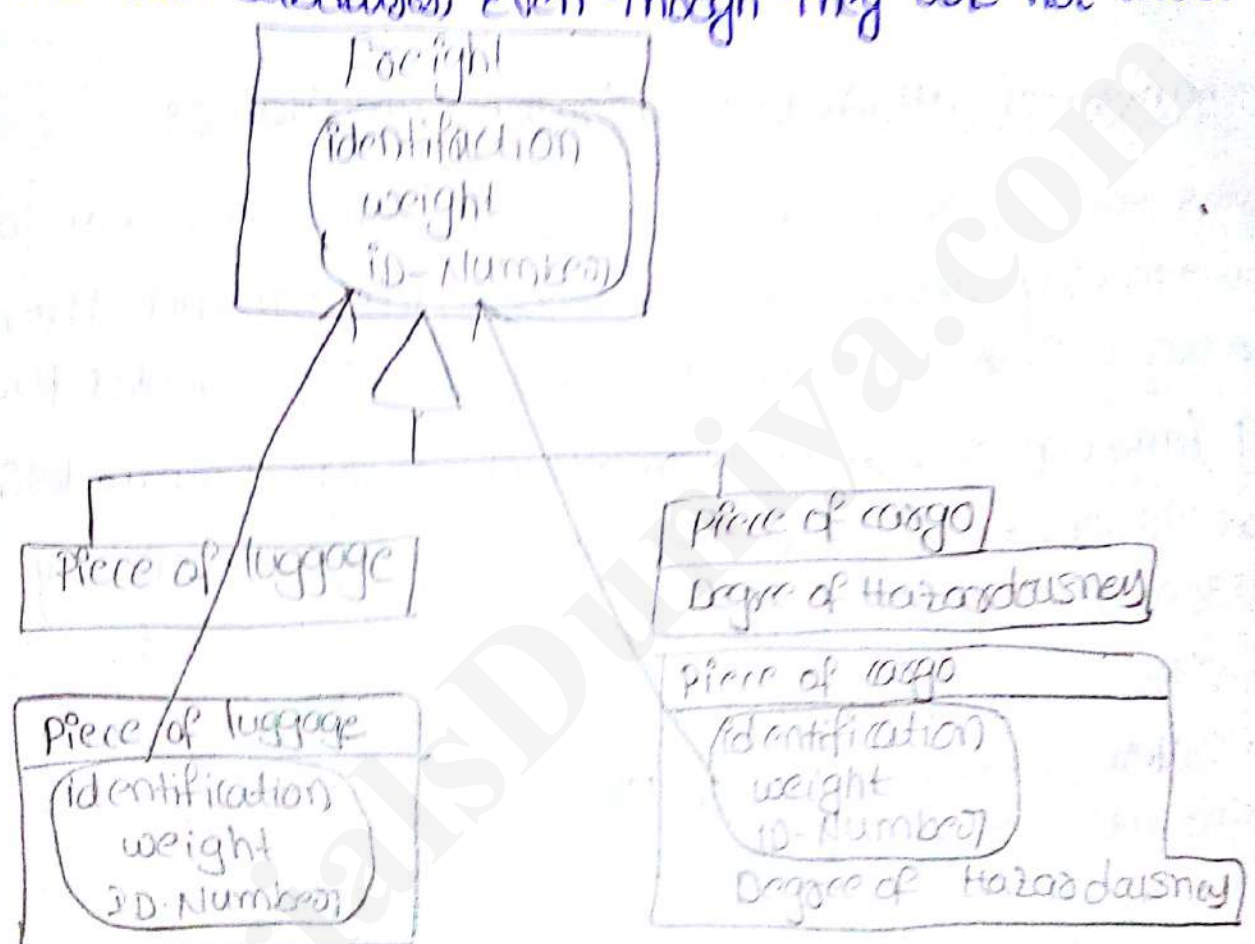 even though they are not
Foreight
identifaction
weight
iD-Number
Piece of luggage
Piece of cargo
Degre of Hazardousney
Piece of luggage
identification
weight
ID-Number
Piece of cargo
identification
weight
ID-Number
Deggree of Hazardousney